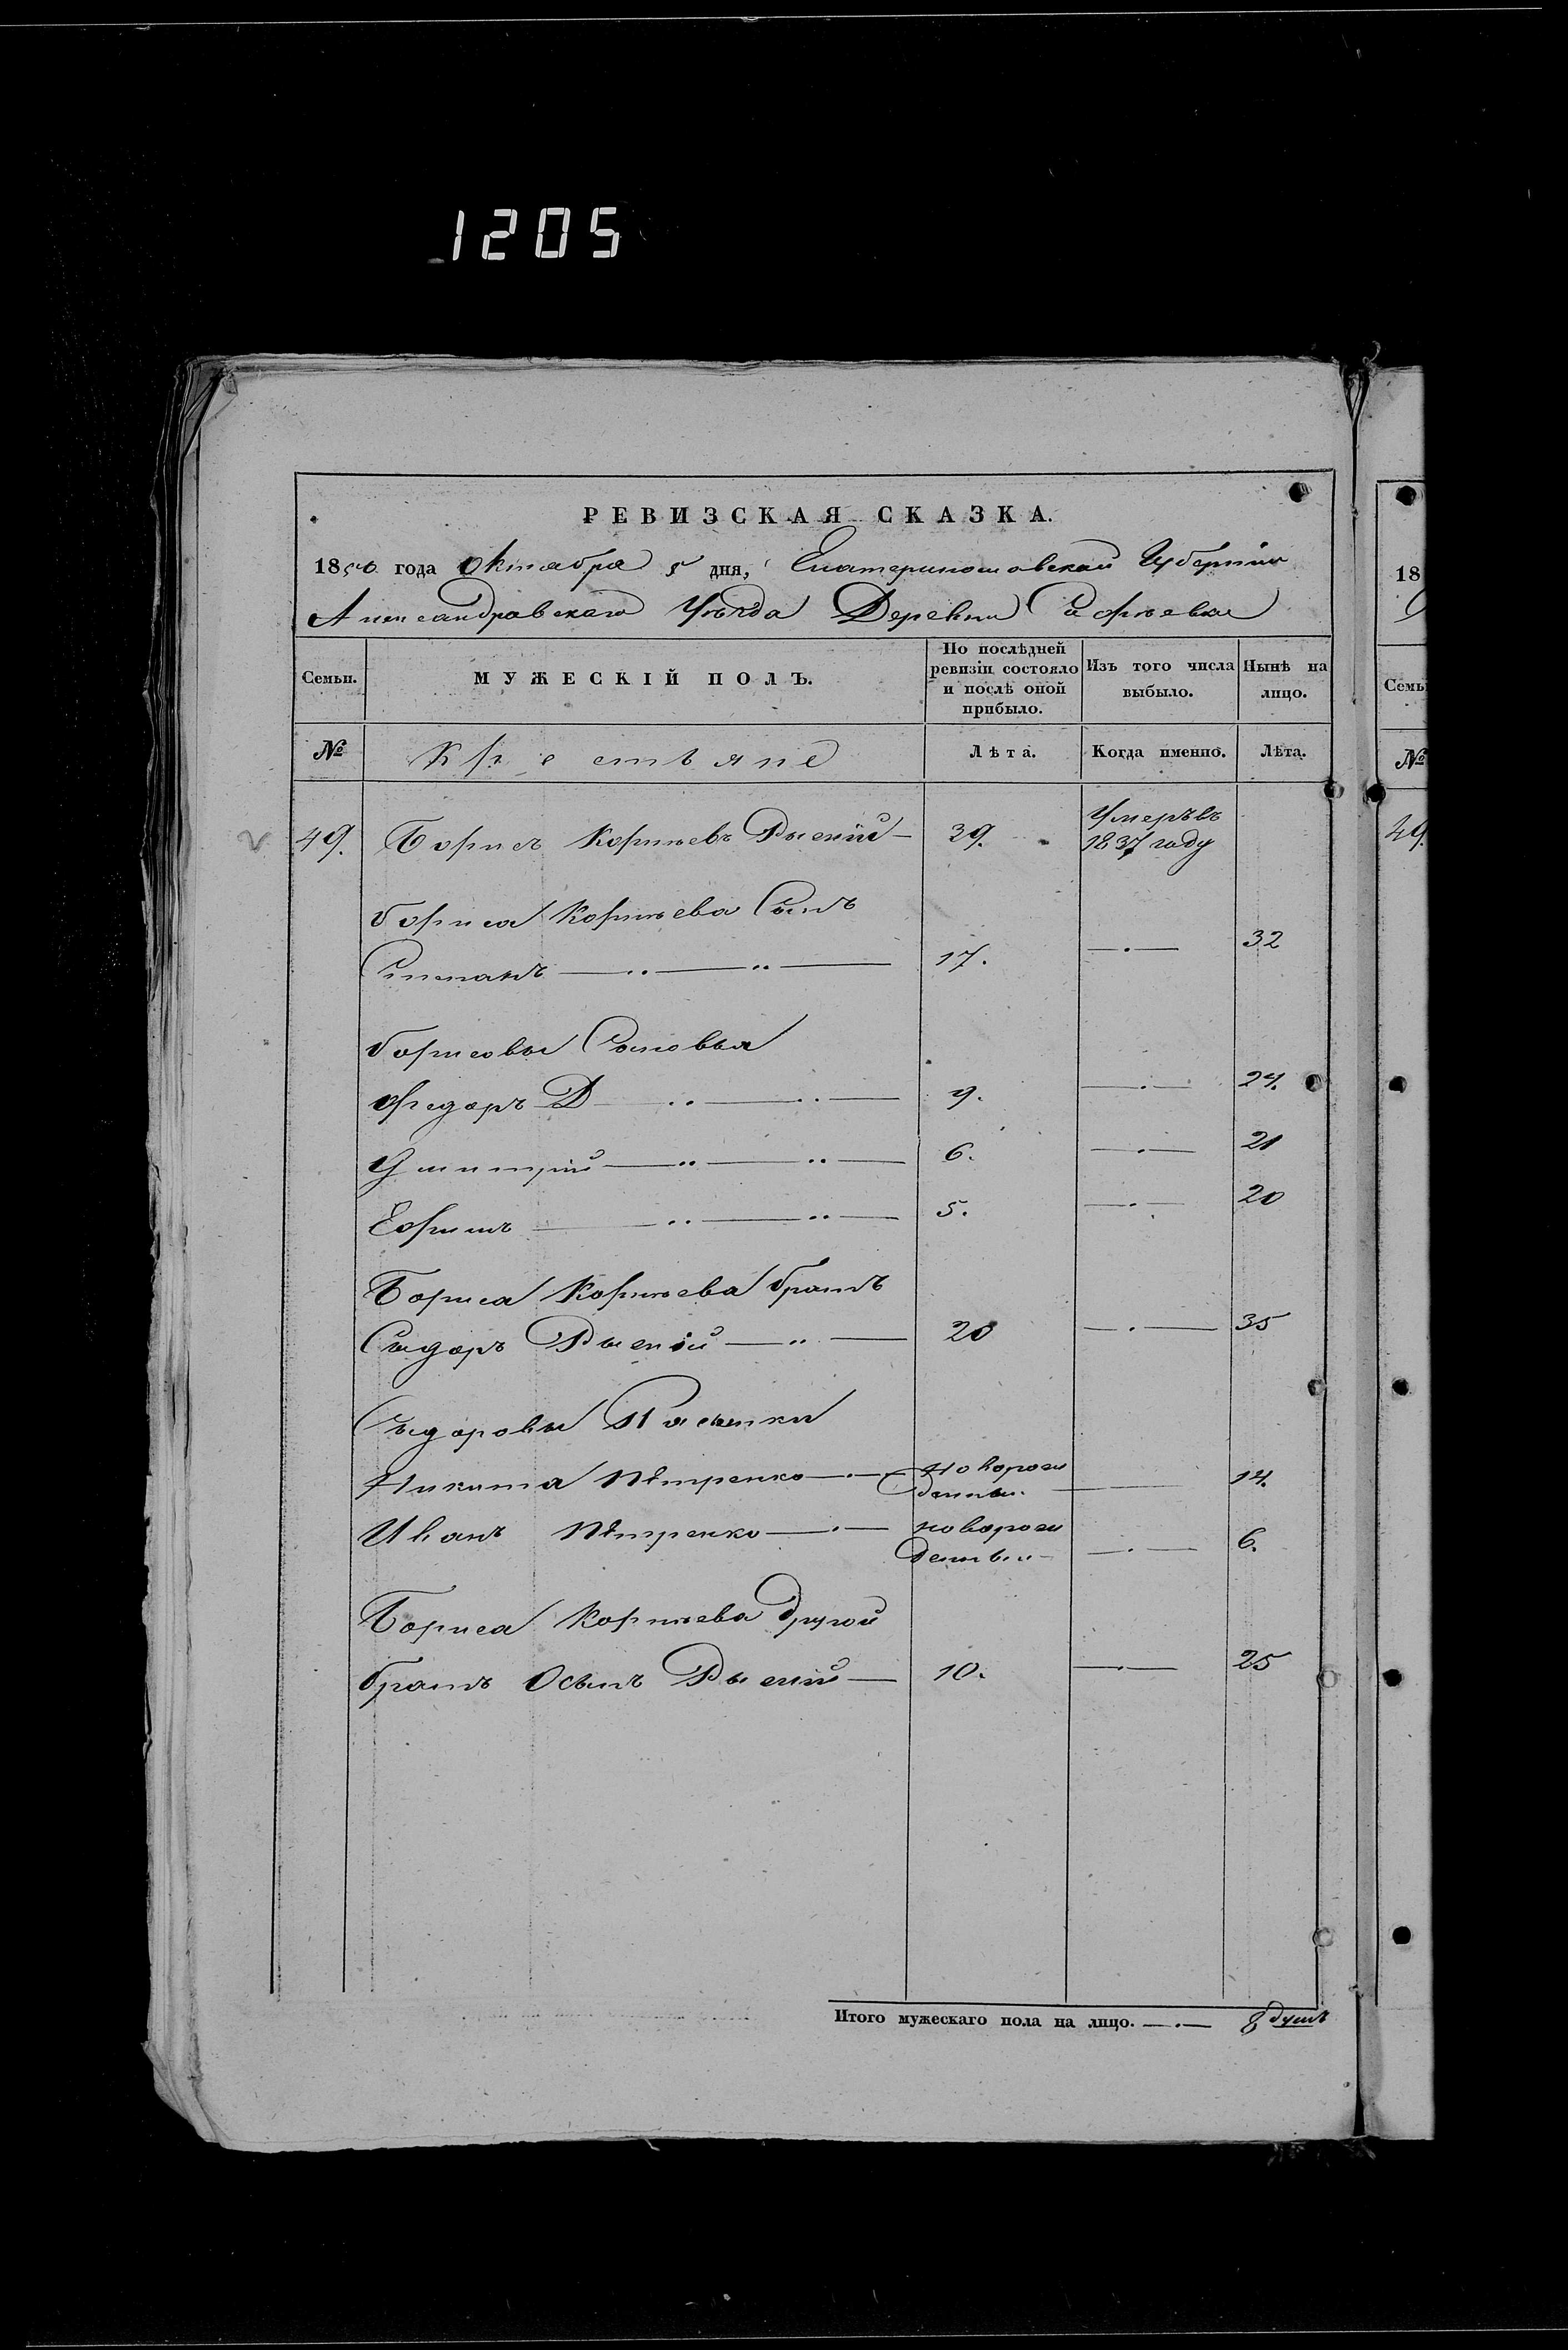 1205
РЕВИЗСКАЯ СКАЗКА.
1850 года Октября 5 дня, Екатеринославской Губернии
Александравскаго Уѣзда Деревни Софіевки
Семьи. МУЖЕСКІЙ ПОЛЪ. По послѣдней ревизіи состояло и послѣ оной прибыло. Изъ того числа выбыло. Нынѣ на лицо.
№ Крестьяне Лѣта. Когда именно. Лѣта.
49. Борисъ Корнѣевъ 39. Умеръ въ 1837 году
бориса Корнѣева Сынъ
Степанъ 17. 32
борисовы Сыновья
Федоръ 9. 24.
Дмитрий 6. 21
Ефимъ 5. 20
Бориса Корнѣева братъ
Сыдоръ 20 35
Сыдоровы Пасынки
Никита Пѣтренко новорожденный 14.
Иванъ Пѣтренко новорожденный 6.
Бориса Корнѣева другой
братъ Осыпъ 10. 25
Итого мужескаго пола на лицо. 8 душъ
18
Семь
№
49.